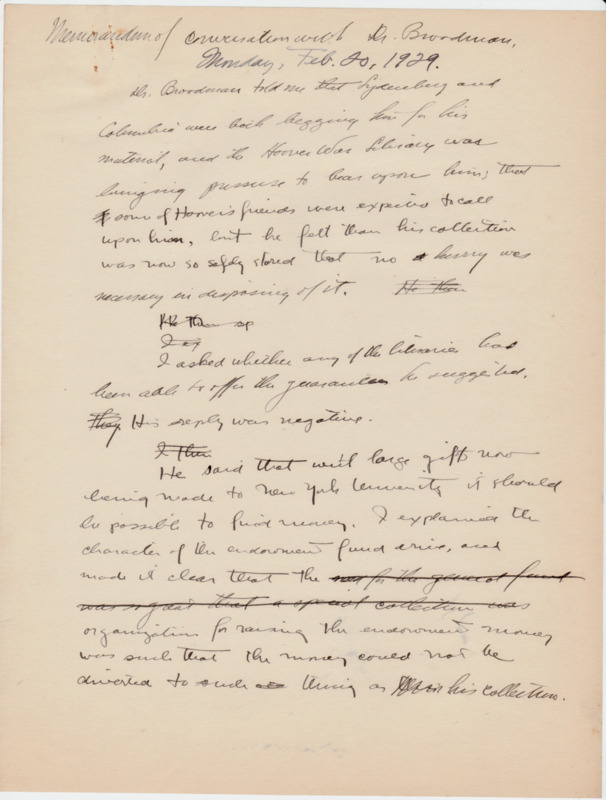 Memorandum of conversation with Dr. Broodman,
Monday, Feb. 20, 1929.
Dr. Broodman told me that Lydenberg and
Columbia were both begging him for his
material, and the Hoover War Library was
bringing pressure to bear upon him; that
some of Hoover's friends were expected to call
upon him, but he felt that his collection
was now so safely stored that no hurry was
necessary in disposing of it. He then
He then
I
I asked whether any of the libraries had
been able to offer the guarantees he suggested.
They His reply was negative.
I then
He said that with large gifts now
being made to New York University it should
be possible to find money. I explained the
character of the endowment fund drive, and
made it clear that the for the general fund
was so great that a special collection was
organization for raising the endowment money
was such that the money could not be
diverted to such thing as his collection.